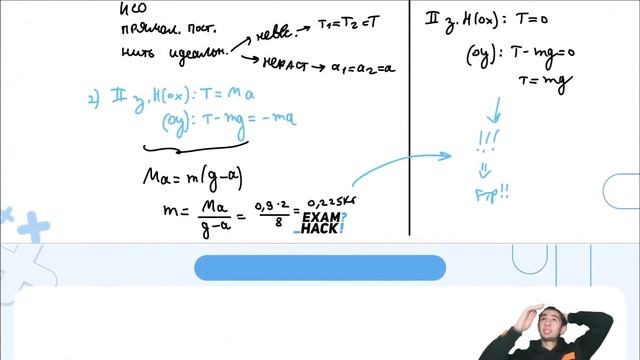 ИСО
прямол. пост.
нить идеальн. → невес. → T₁=T₂=T
→ нераст → a₁=a₂=a
2) II з.Н(ox): T = Ma
(oy): T-mg=-ma
Ma = m(g-a)
m = Ma/(g-a) = 0,9·2/8 = 0,225кг
EXAM?
_HACK!
II з.Н(ox): T=0
(oy): T-mg=0
T=mg
!!!
Fтр!!